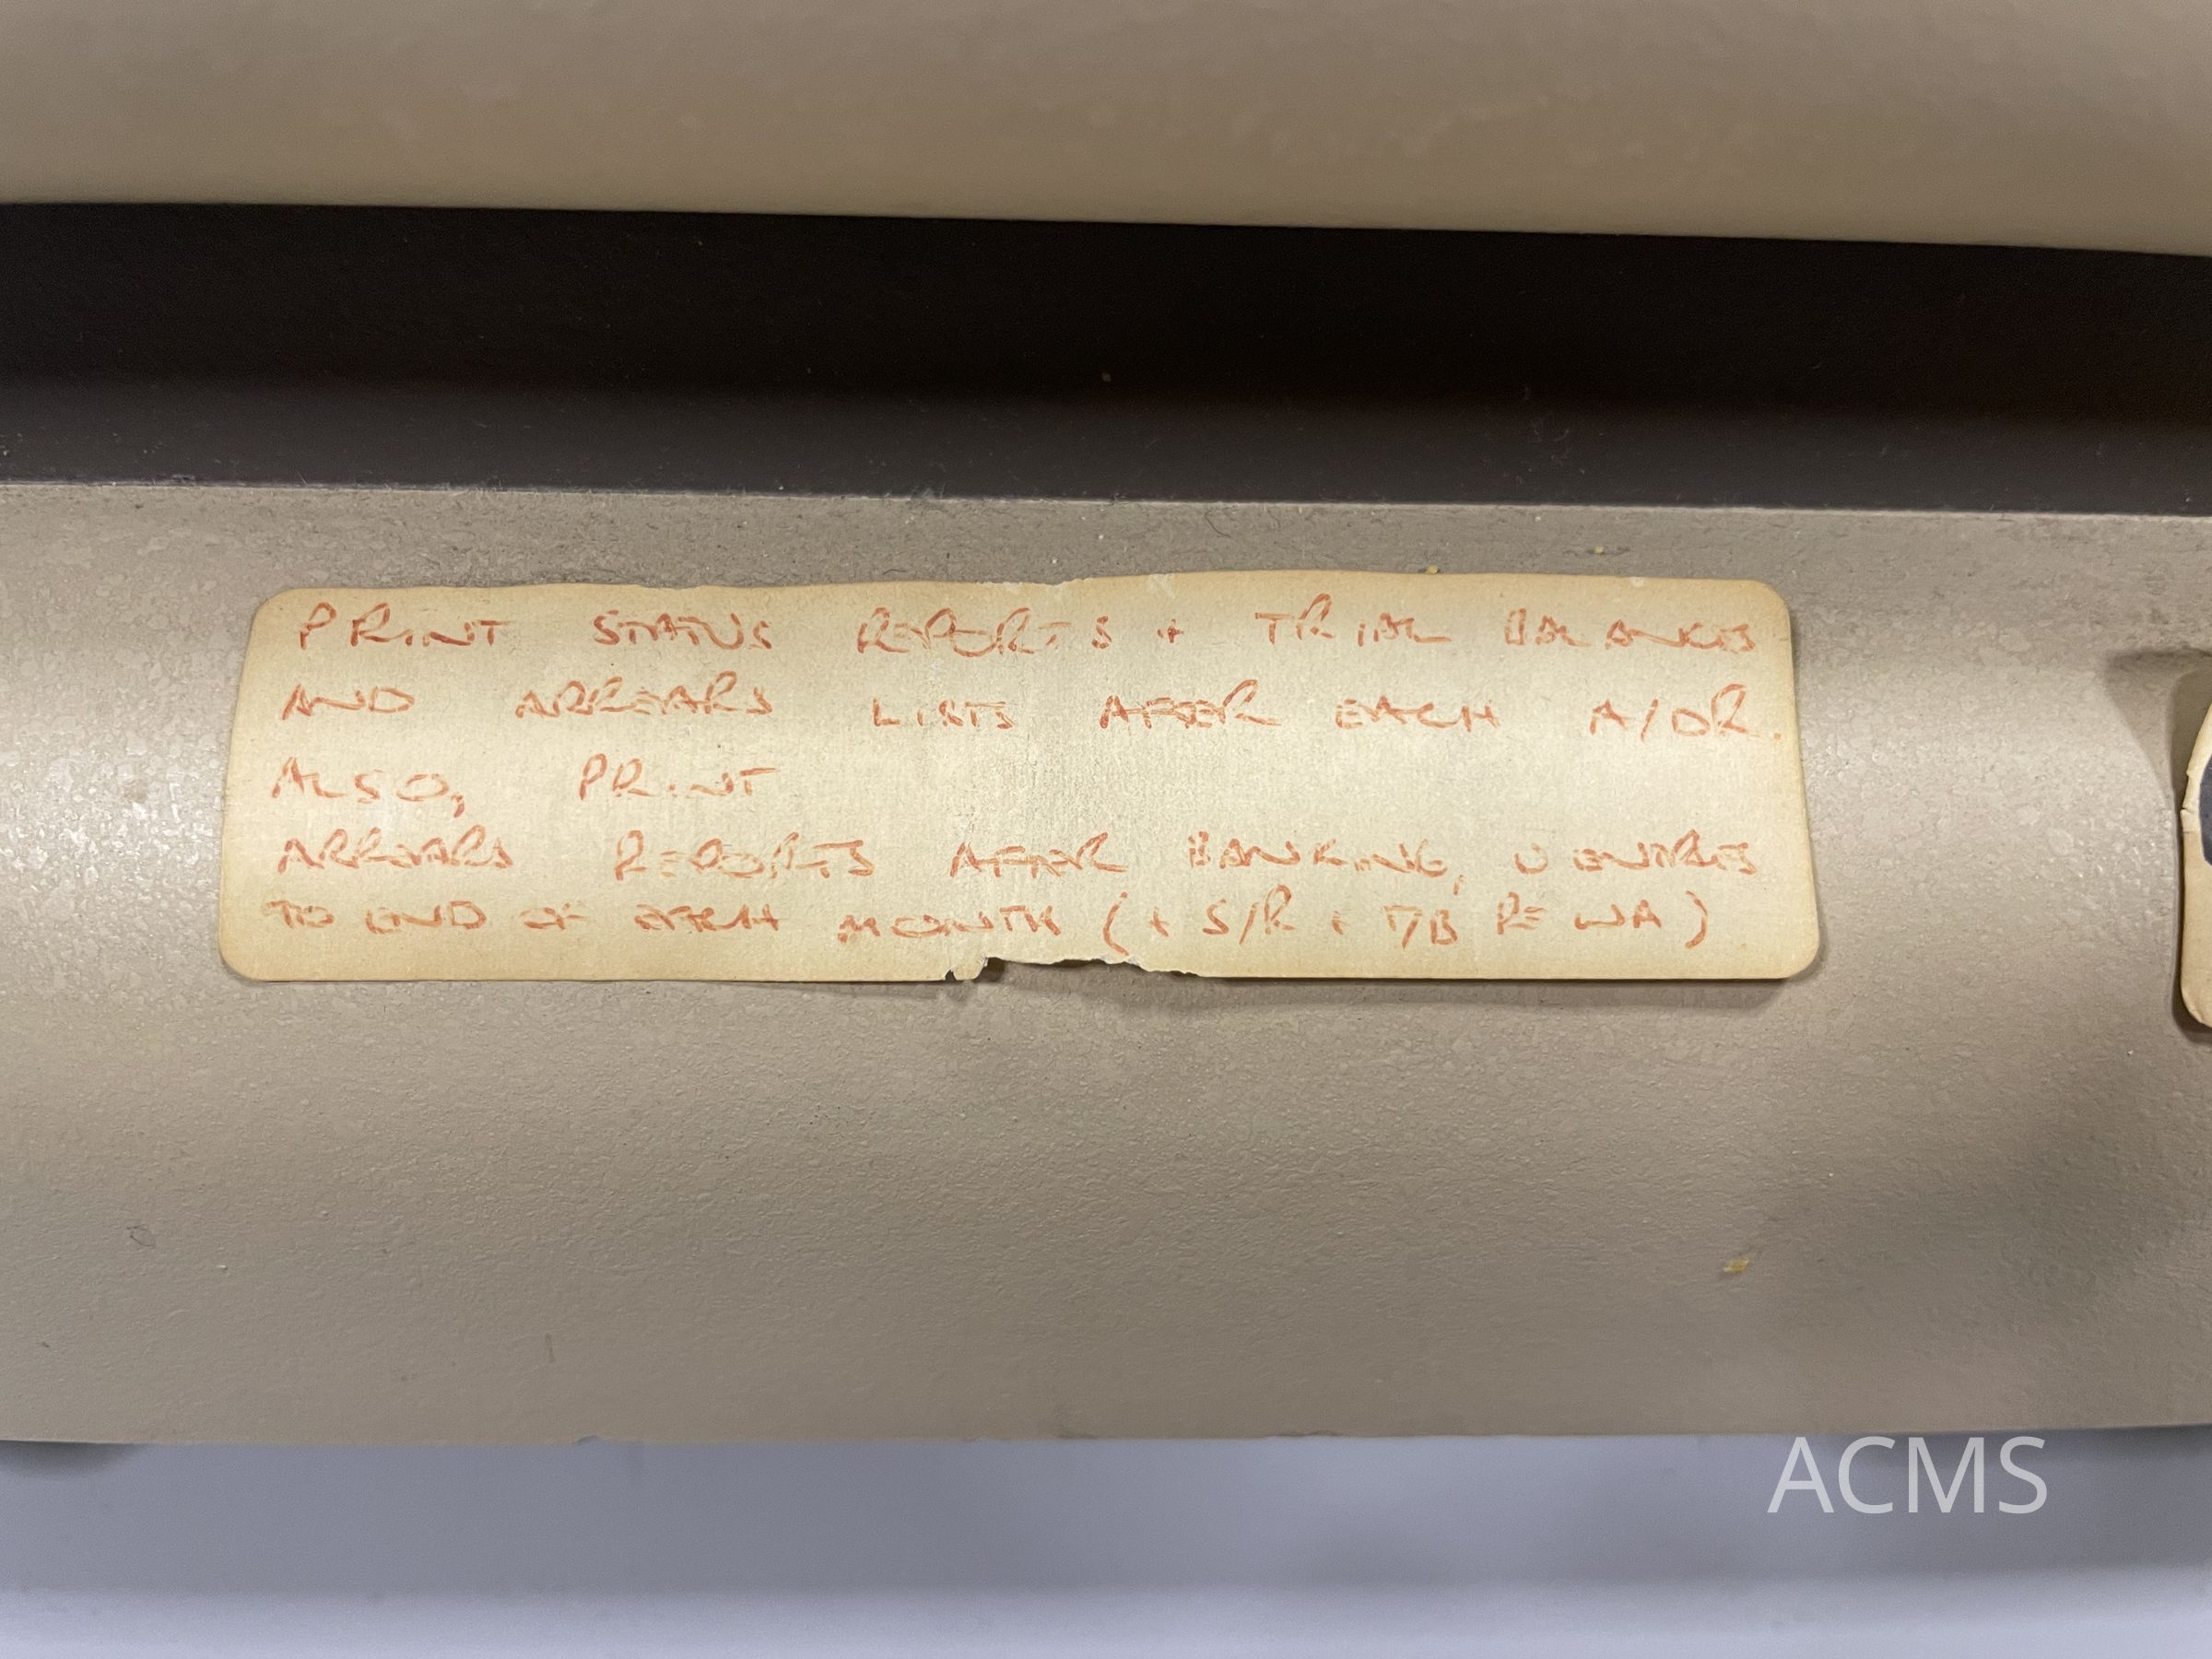 PRINT STATUS REPORTS + TRIAL BALANCES
AND ARREARS LISTS AFTER EACH A/DR.
ALSO, PRINT
ARREARS REPORTS AFTER BANKING, ENTRIES
TO END OF EACH MONTH (+ S/R + T/B RE WA)
ACMS